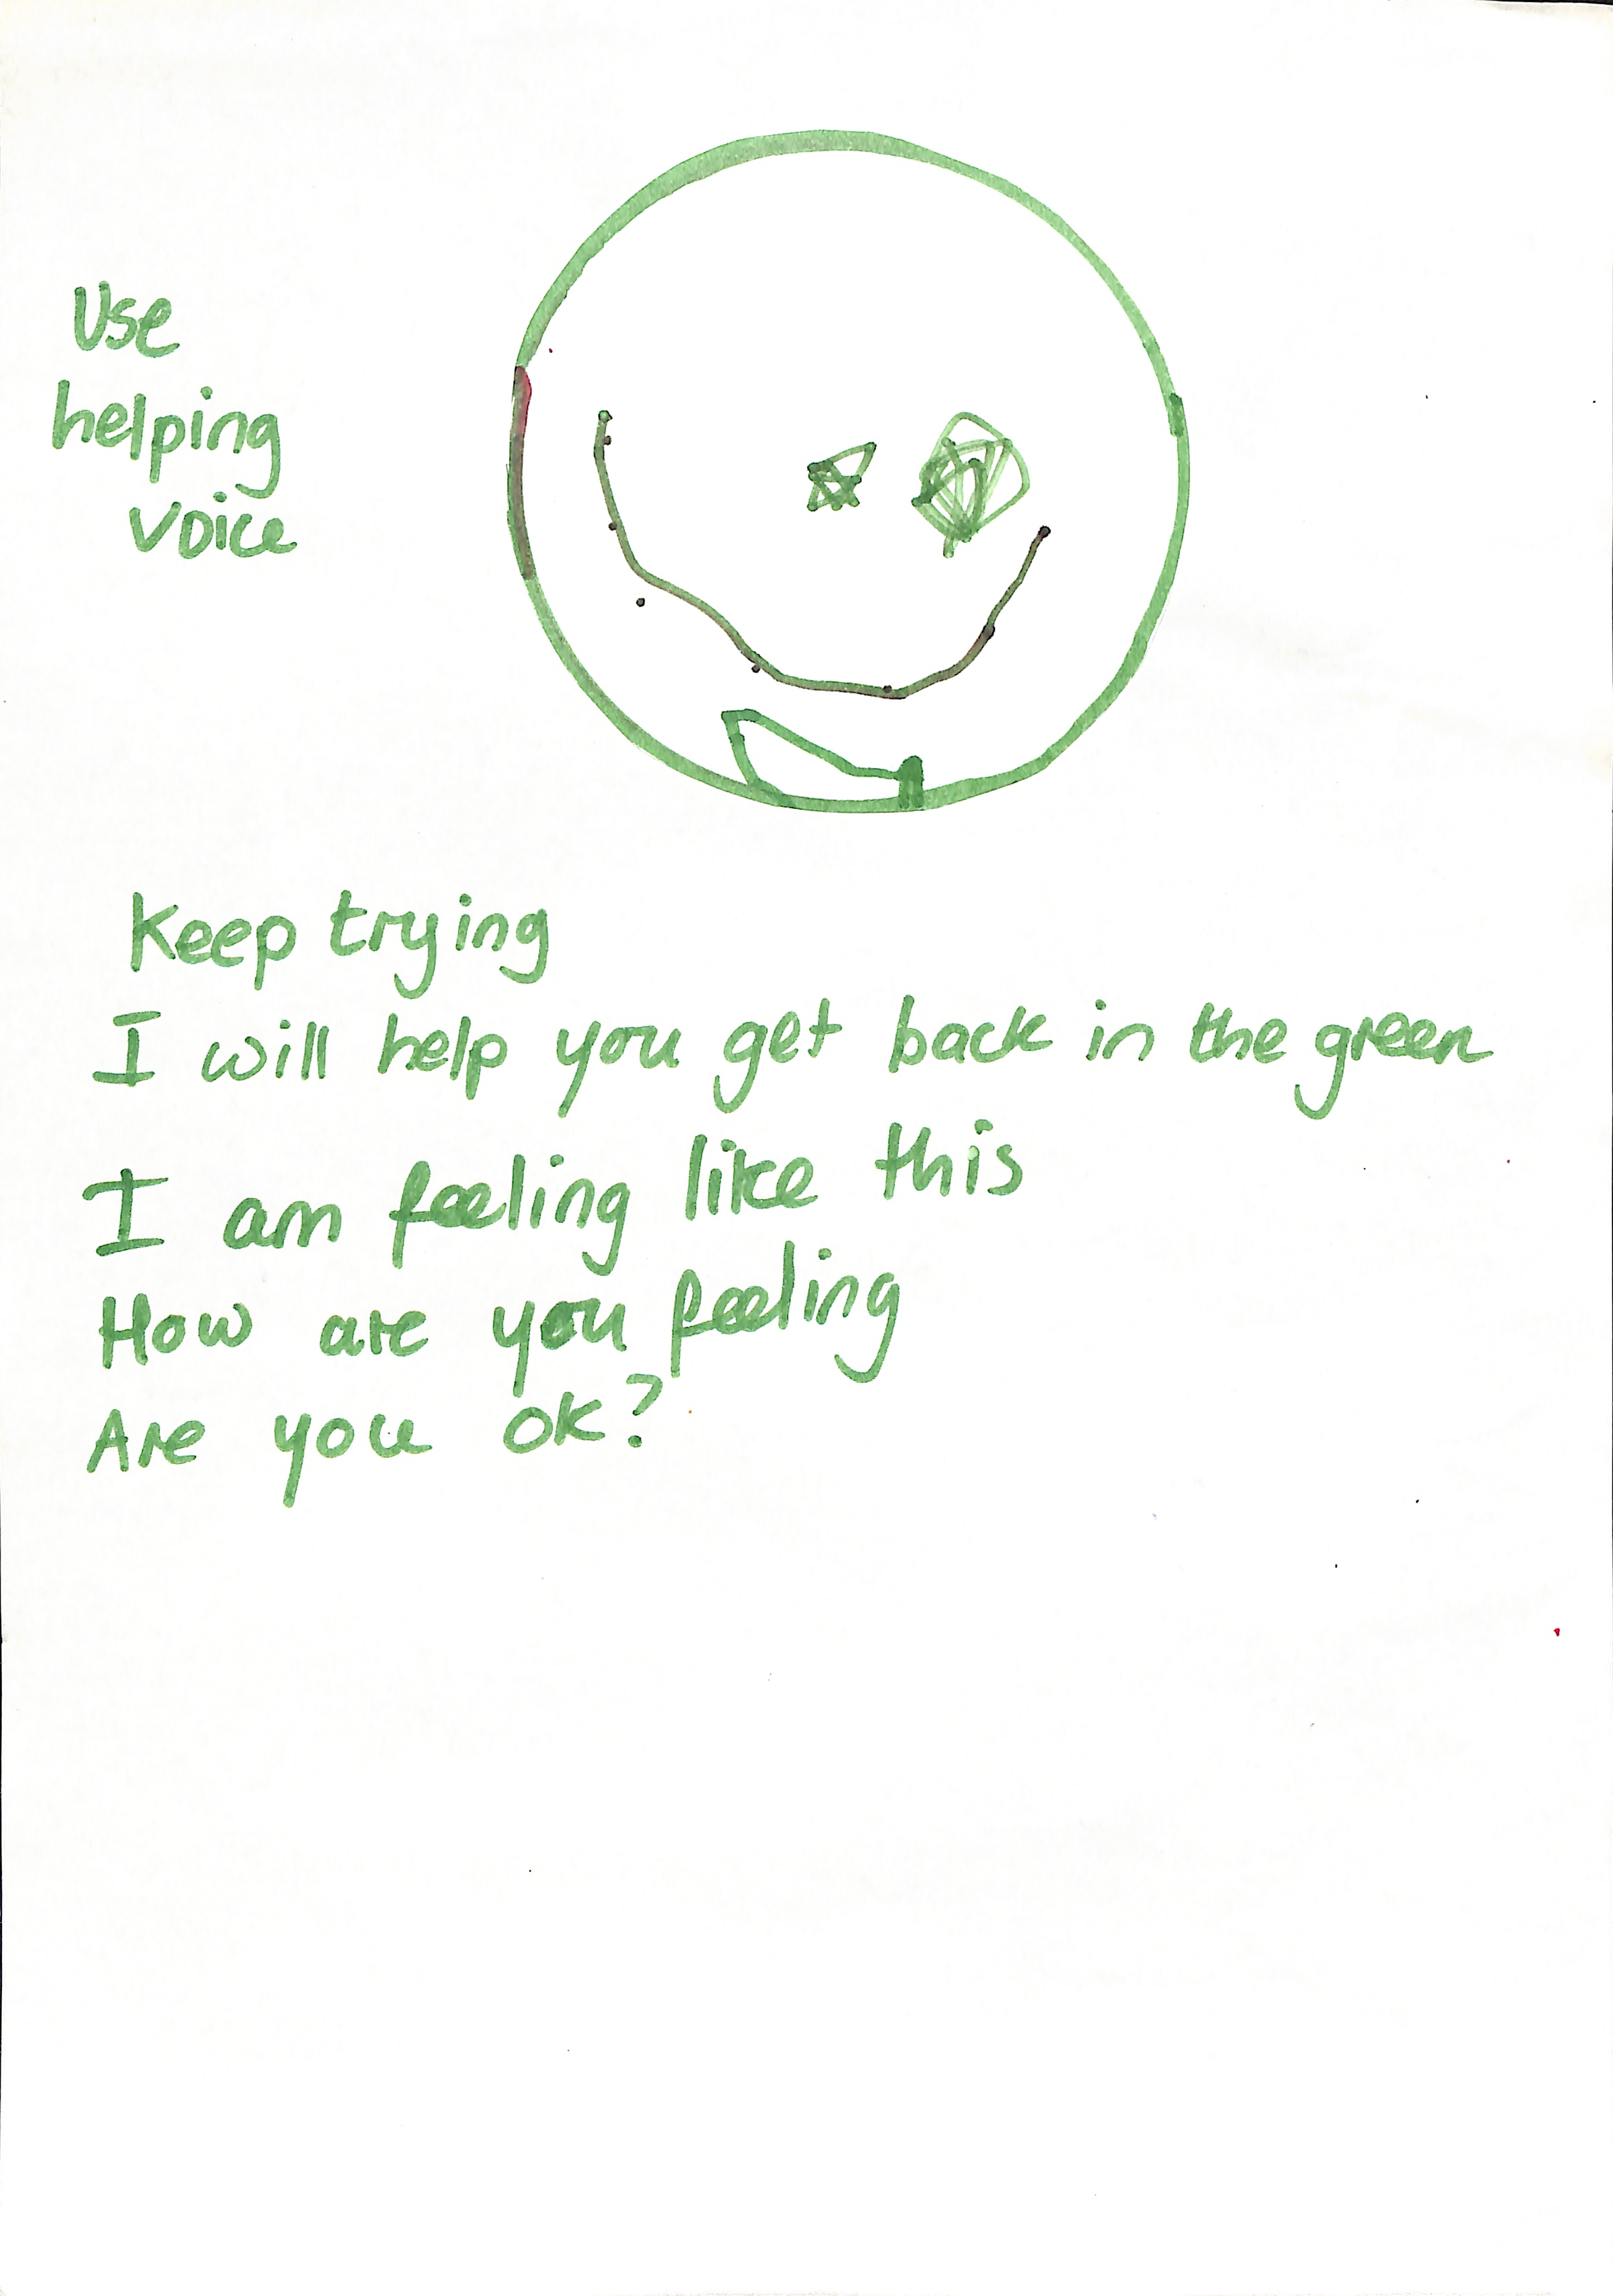 Use
helping
voice
Keep trying
I will help you get back in the green
I am feeling like this
How are you feeling
Are you ok?